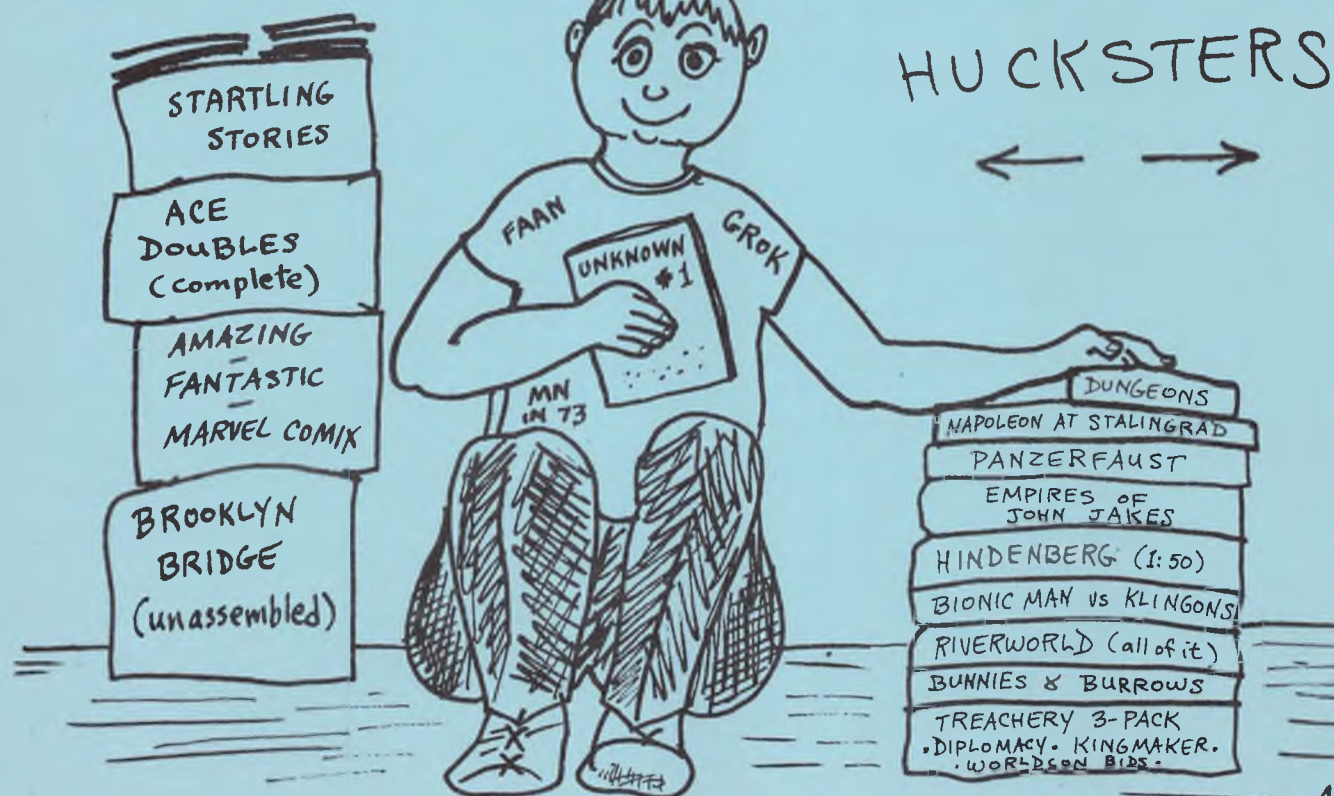 HUCKSTERS
STARTLING
STORIES
ACE
DOUBLES
(complete)
AMAZING
FANTASTIC
MARVEL COMIX
BROOKLYN
BRIDGE
(unassembled)
FAAN
GROK
UNKNOWN
#1
MN
IN 73
DUNGEONS
NAPOLEON AT STALINGRAD
PANZERFAUST
EMPIRES OF
JOHN JAKES
HINDENBERG (1:50)
BIONIC MAN VS KLINGONS
RIVERWORLD (all of it)
BUNNIES & BURROWS
TREACHERY 3-PACK
• DIPLOMACY • KINGMAKER •
• WORLDSON BIDS •